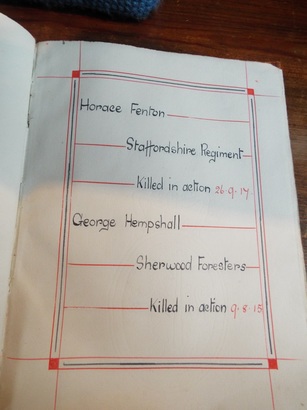 Horace Fenton
Staffordshire Regiment
Killed in action 26·9·17
George Hempshall
Sherwood Foresters
Killed in action 9·8·15